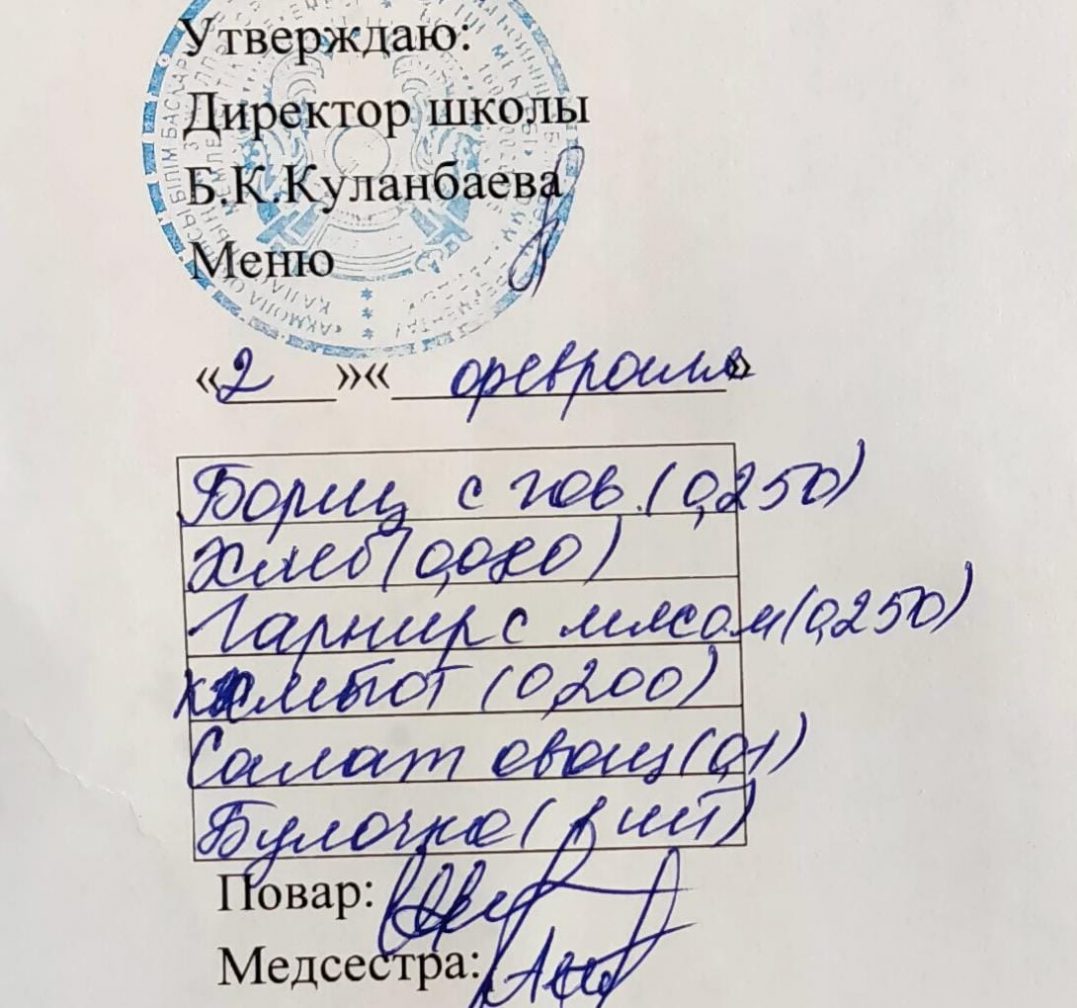 Утверждаю:
Директор школы
Б.К.Куланбаева
Меню
«2 »« февраля»
Борщ с гов. (0,250)
Хлеб (0,080)
Гарнир с мясом (0,250)
Компот (0,200)
Салат овощ (0,1)
Булочка (1 шт)
Повар:
Медсестра: